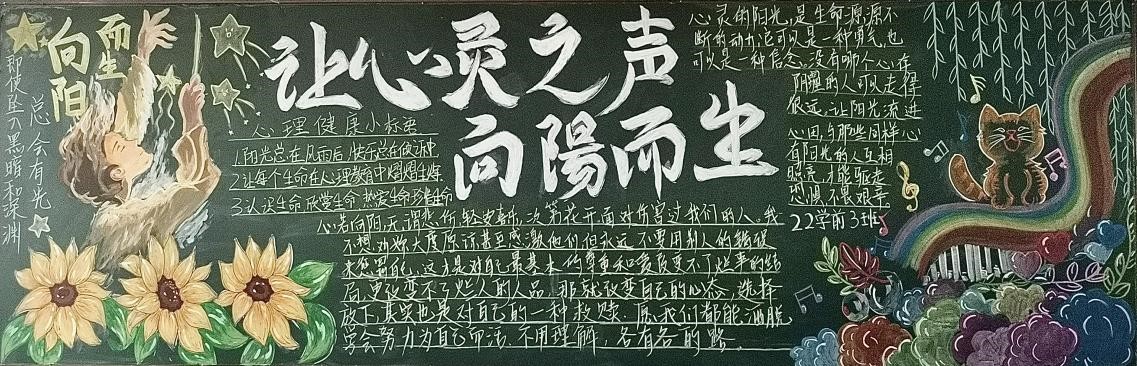 向阳
而生
即使坠入黑暗和深渊
总会有光
让心灵之声
向陽而生
心理健康小标语
1.阳光总在风雨后,快乐总在
2.让每个生命在心理教育中熠熠生辉
3.认识生命 欣赏生命 热爱生命 珍惜生命
心若向阳无谓悲伤 次第花开 面对伤害过我们的人,我
不想劝你大度原谅甚至感激他们,但永远不要用别人的错误
来惩罚自己,这才是对自己最基本的尊重和 改变不了烂事的结
局,更改变不了烂人的人品,那就改变自己的心态,选择
放下,其实也是对自己的一种救赎.愿我们都能洒脱
学会努力为自己而活.不用理解,各有各的路.
心灵的阳光,是生命源源不
断的动力,它可以是一种勇气,也
可以是一种信念,没有哪个人心在
阴霾的人可以走得
很远,让阳光流进
心田,与那些同样心
有阳光的人互相
照亮,才能驱走
恐惧不畏艰辛
22学前3班